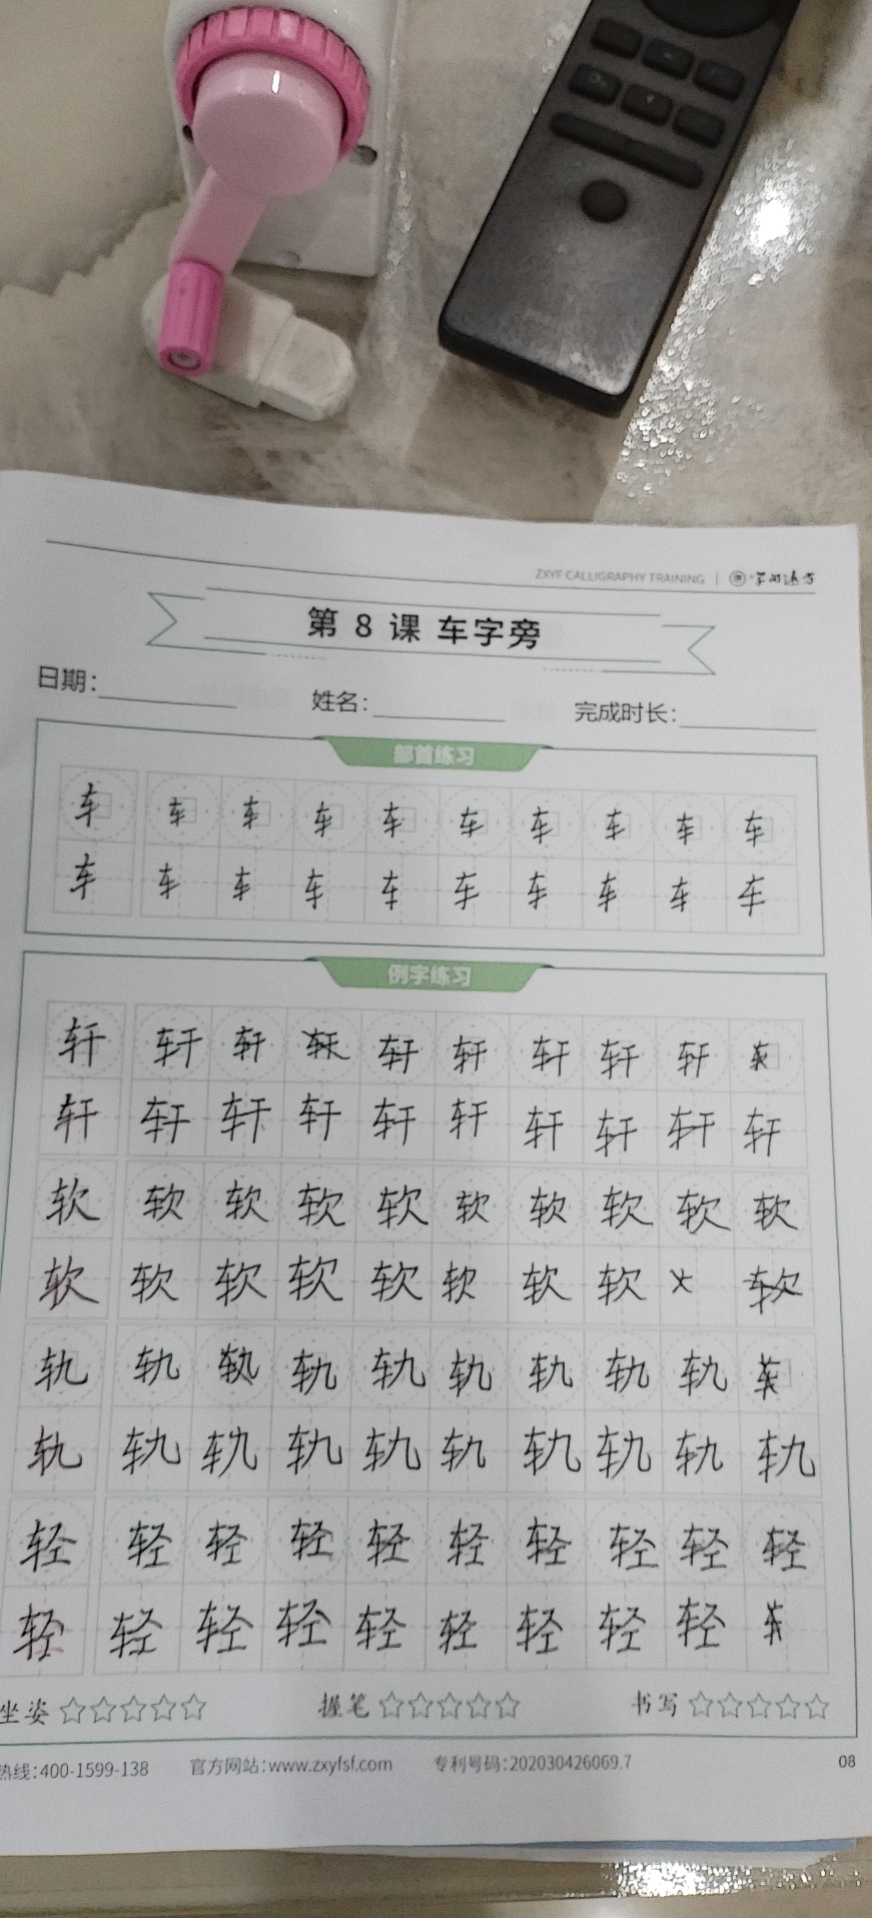 ZXYF CALLIGRAPHY TRAINING | 字如遠方
第 8 课 车字旁
日期: 姓名: 完成时长:
部首练习
车 车 车 车 车 车 车 车 车 车
车 车 车 车 车 车 车 车 车 车
例字练习
轩 轩 轩 轩 轩 轩 轩 轩
轩 轩 轩 轩 轩 轩 轩 轩 轩 轩
软 软 软 软 软 软 软 软 软 软
软 软 软 软 软 软 软 软 软
轨 轨 轨 轨 轨 轨 轨 轨
轨 轨 轨 轨 轨 轨 轨 轨 轨 轨
轻 轻 轻 轻 轻 轻 轻 轻 轻 轻
轻 轻 轻 轻 轻 轻 轻 轻 轻
坐姿 握笔 书写
热线:400-1599-138 官方网站:www.zxyfsf.com 专利号码:202030426069.7 08